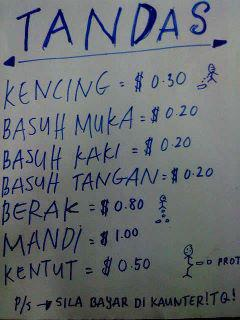 TANDAS
KENCING = $ 0.30
BASUH MUKA = $ 0.20
BASUH KAKI = $ 0.20
BASUH TANGAN = $ 0.20
BERAK = $ 0.80
MANDI = $ 1.00
KENTUT = $ 0.50
PROT
P/s → SILA BAYAR DI KAUNTER! TQ!